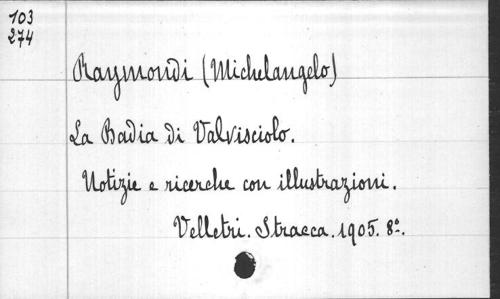 103
274
Raymondi (Michelangelo)
La Badia di Valvisciolo.
Notizie e ricerche con illustrazioni.
Velletri. Stracca. 1905. 8º.